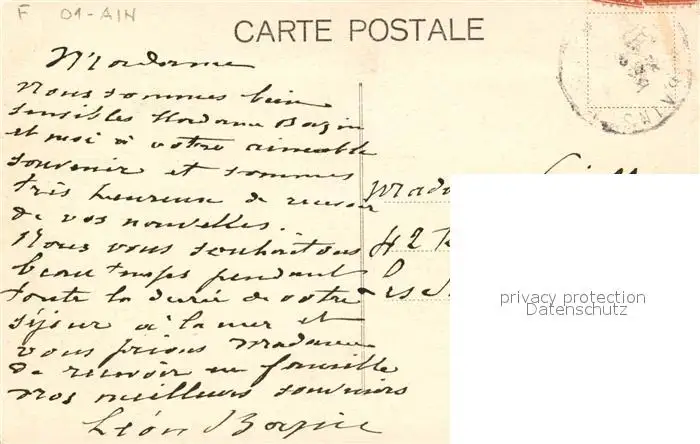 F 01-AIN
CARTE POSTALE
Madame
Nous sommes bien
sensibles Madame Bazin
et moi à votre aimable
souvenir et sommes
très heureuse de recevoir
de vos nouvelles.
Nous vous souhaitons
beau temps pendant
toute la durée de votre
séjour à la mer et
vous prions Madame
de recevoir en famille
nos meilleurs souvenirs
Léon Bazin
Mada
42
privacy protection
Datenschutz